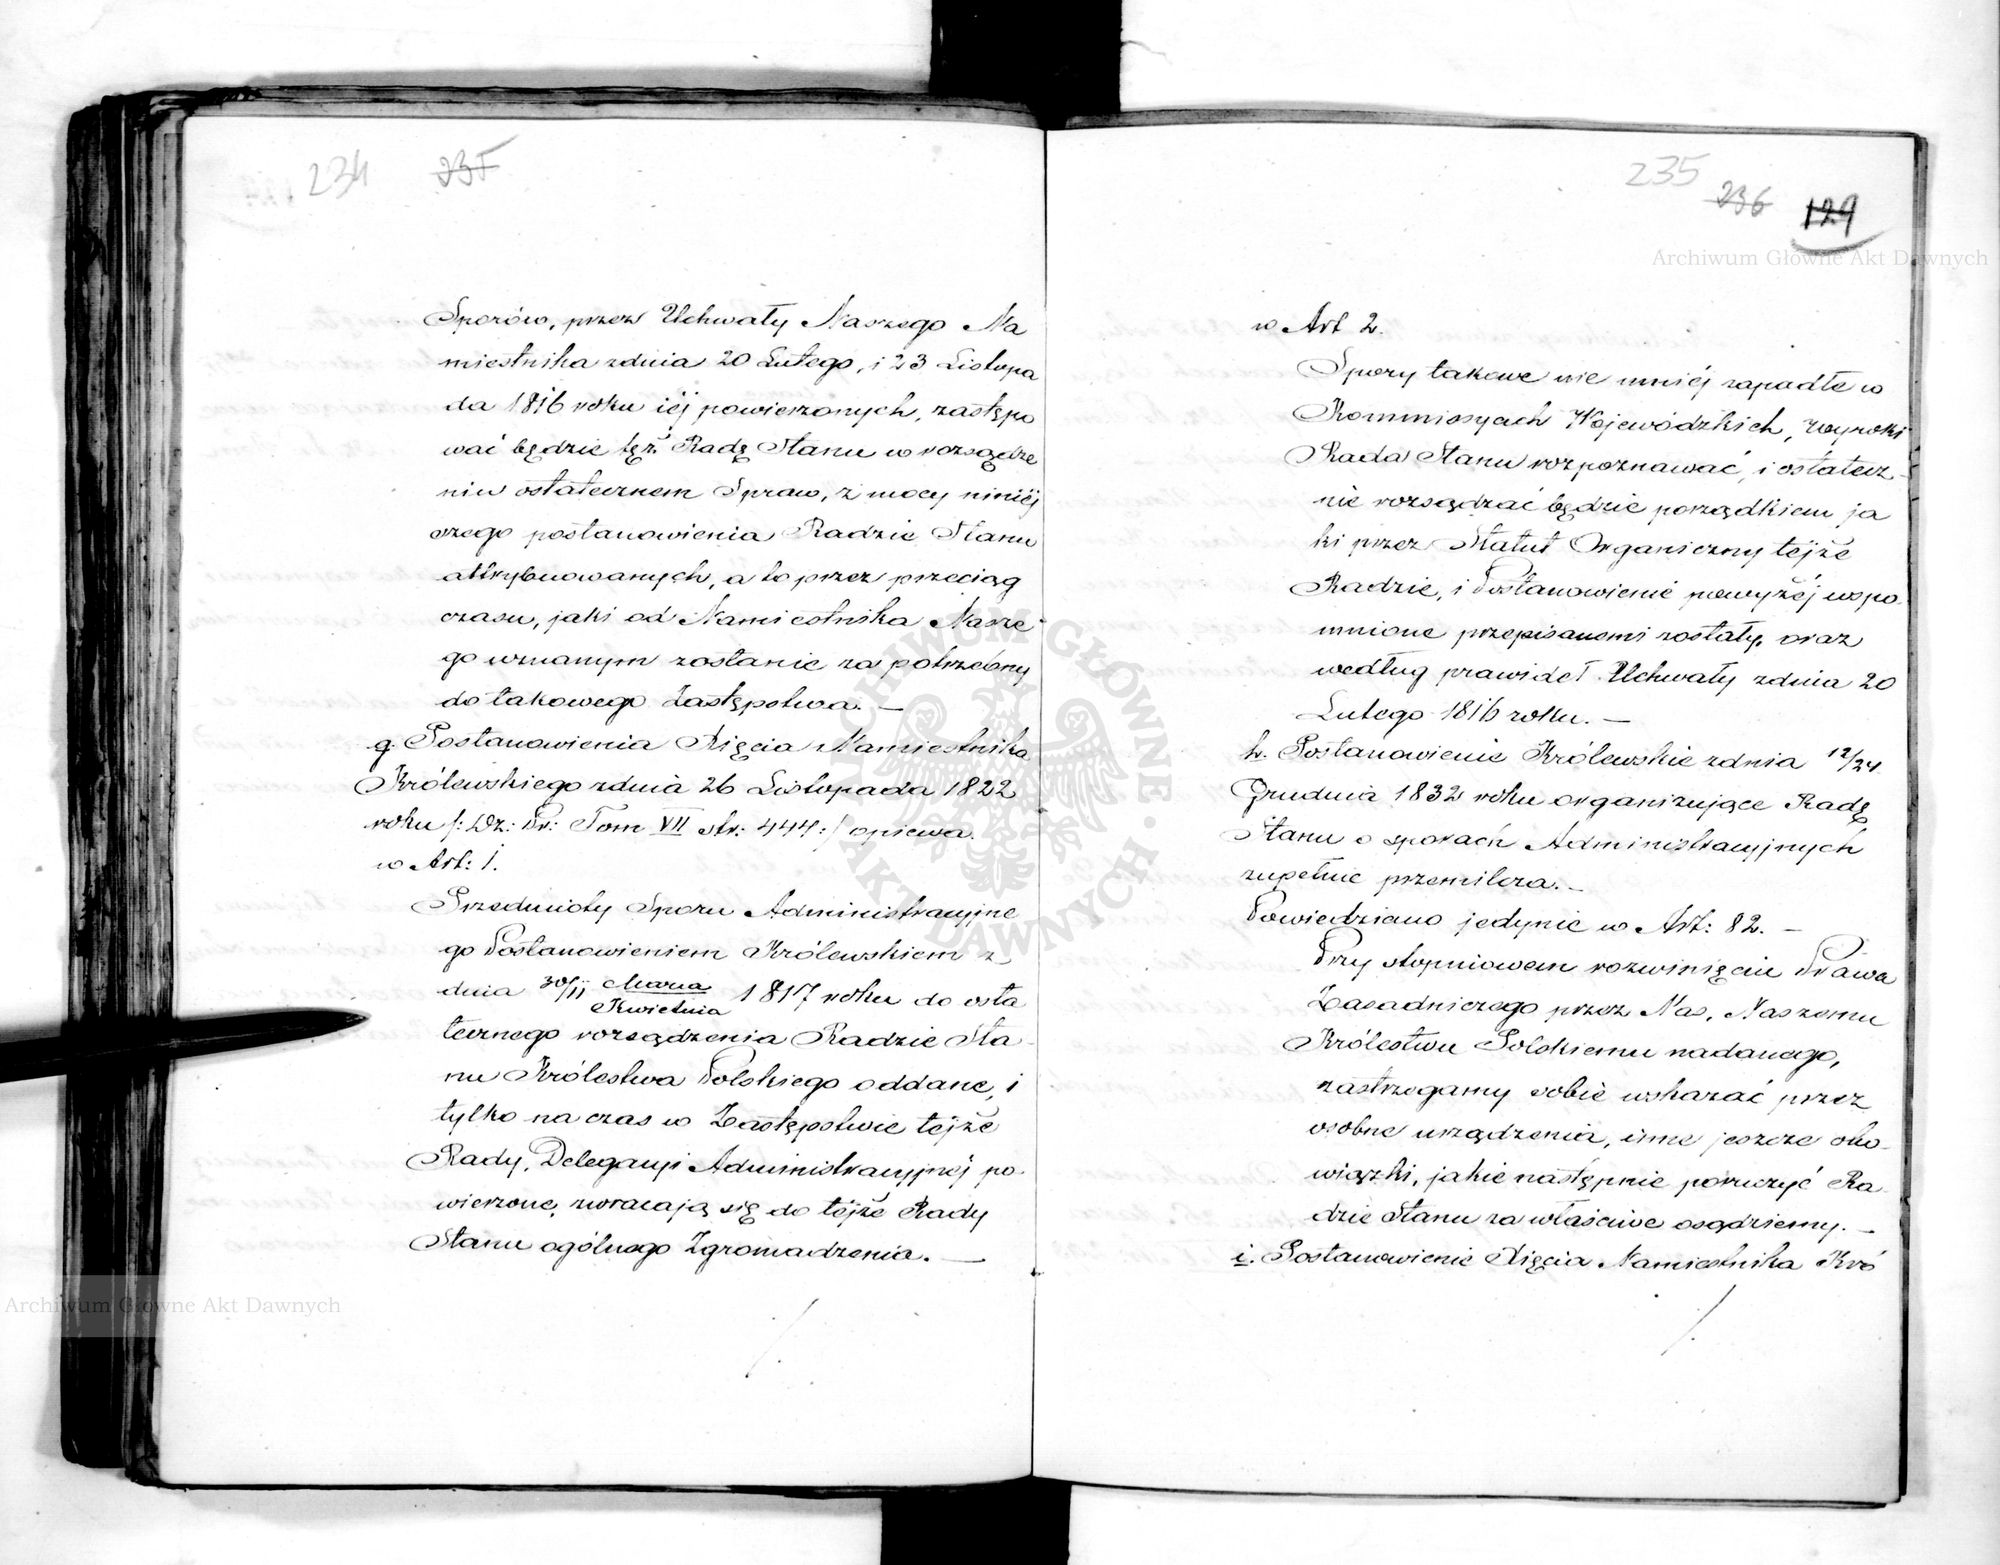 234 235
Sporów, przez Uchwały Naszego Na
miestnika z dnia 20 Lutego, i 23 Listopa
da 1816 roku iéj powierzonych, zastępo
wać będzie tęż Radę Stanu w rozsądze
niu ostatecznem Spraw, z mocy niniéj
szego postanowienia Radzie Stanu
attrybuowanych, a to przez przeciąg
czasu, jaki od Namiestnika Nasze
go uznanym zostanie za potrzebny
do takowego Zastępstwa. —
g. Postanowienia Xięcia Namiestnika
Królewskiego z dnia 26 Listopada 1822
roku /: Dz: Pr: Tom VII str: 444:/ opiewa.
w Art: 1.
Przedmioty Sporu Administracyjne
go Postanowieniem Królewskiem z
dnia 30/11 Marca/Kwietnia 1817 roku do osta
tecznego rozsądzenia Radzie Sta
nu Królestwa Polskiego oddane, i
tylko na czas w Zastępstwie tejże
Rady, Delegacyi Administracyjnéj po
wierzone, zwracają się do téjże Rady
Stanu ogólnego Zgromadzenia. —
235 236 129
w Art 2.
Spory takowe nie mniéj zapadłe w
Kommissyach Wojewódzkich, wyroki
Rada Stanu rozpoznawać, i ostatecz-
nie rozsądzać będzie porządkiem ja
ki przez Statut Organiczny téjże
Radzie, i Postanowienie powyżéj wspo
mnione przepisanemi zostały, oraz
według prawideł Uchwały z dnia 20
Lutego 1816 roku. —
h. Postanowienie Królewskie z dnia 12/24
Grudnia 1832 roku organizujące Radę
Stanu o sporach Administracyjnych
zupełnie przemilcza. —
Powiedziano jedynie w Art: 82. —
Przy stopniowem rozwinięciu Prawa
Zasadniczego przez Nas, Naszemu
Królestwu Polskiemu nadanego,
zastrzegamy sobie wskazać przez
osobne urządzenia, inne jeszcze obo-
wiązki, jakie następnie poruczyć Ra
dzie Stanu za właściwe osądziemy. —
i. Postanowienie Xięcia Namiestnika Kró
Archiwum Główne Akt Dawnych
Archiwum Główne Akt Dawnych
ARCHIWUM GŁÓWNE AKT DAWNYCH